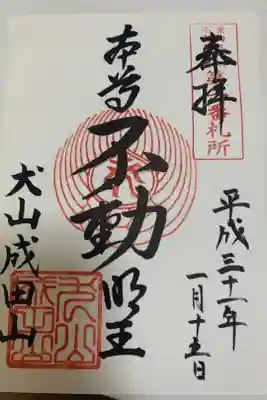 奉拝
平成三十一年
一月十五日
本尊不動明王
犬山成田山
番札所